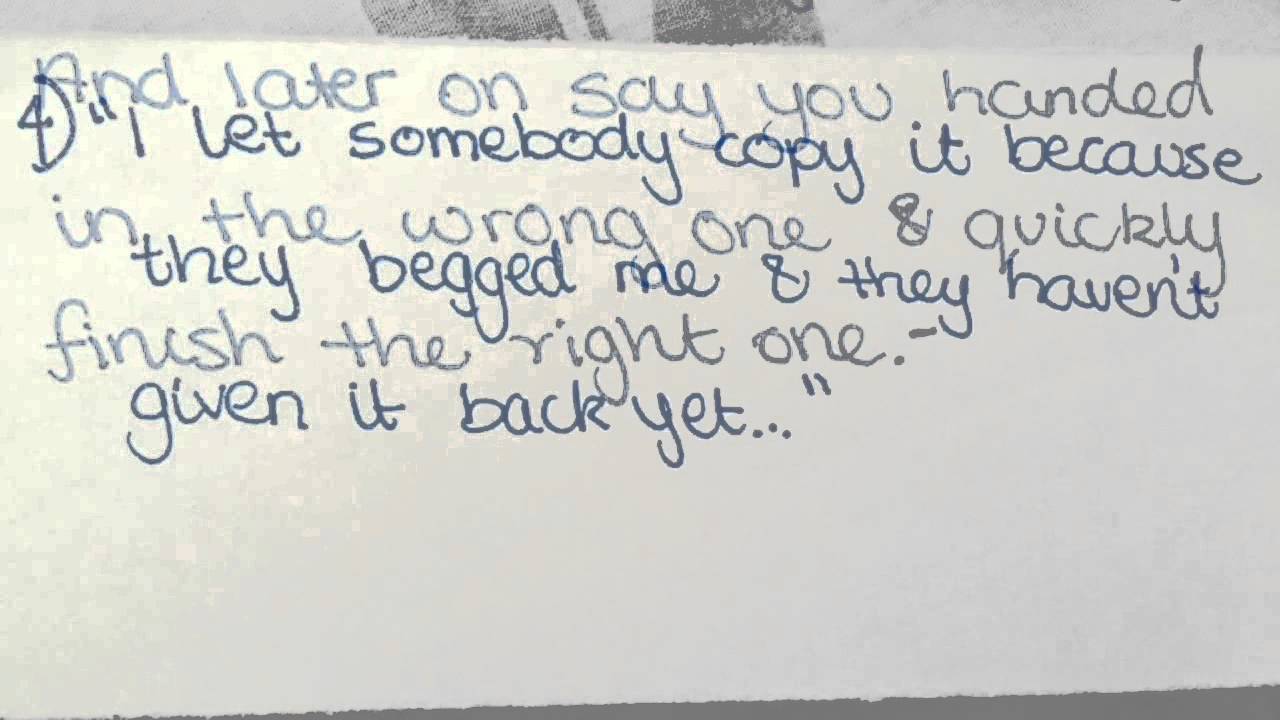 And later on say you handed
in the wrong one & quickly
finish the right one.-
4) "I let somebody copy it because
they begged me & they haven't
given it back yet..."